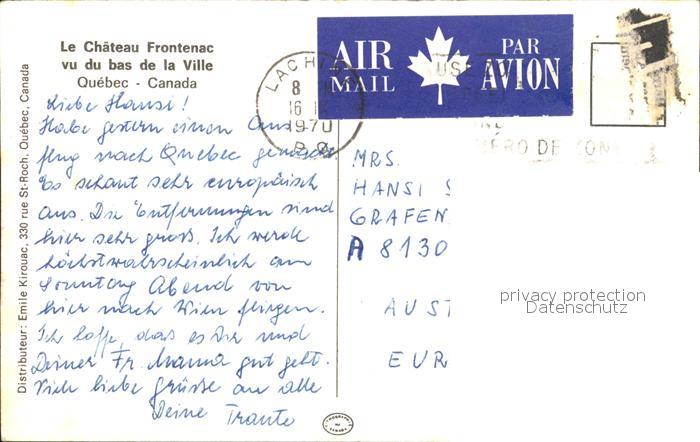 Le Château Frontenac
vu du bas de la Ville
Québec - Canada
Liebe Hansi!
Habe gestern einen Aus-
flug nach Quebec gemacht.
Es schaut sehr europäisch
aus. Die Entfernungen sind
hier sehr gross. Ich werde
höchstwahrscheinlich am
Sonntag Abend von
hier nach Wien fliegen.
Ich hoffe, dass es Dir und
Deiner Fr. Mama gut geht.
Viele liebe Grüsse an alle
Deine Traute
Distributeur: Emile Kirouac, 330 rue St-Roch, Québec, Canada
AIR MAIL
PAR AVION
LACHINE
8
16 IX
1970
P.Q.
MÉRO DE ZONE
MRS.
HANSI S
GRAFEN
A 8130
AUST
EUR
privacy protection
Datenschutz